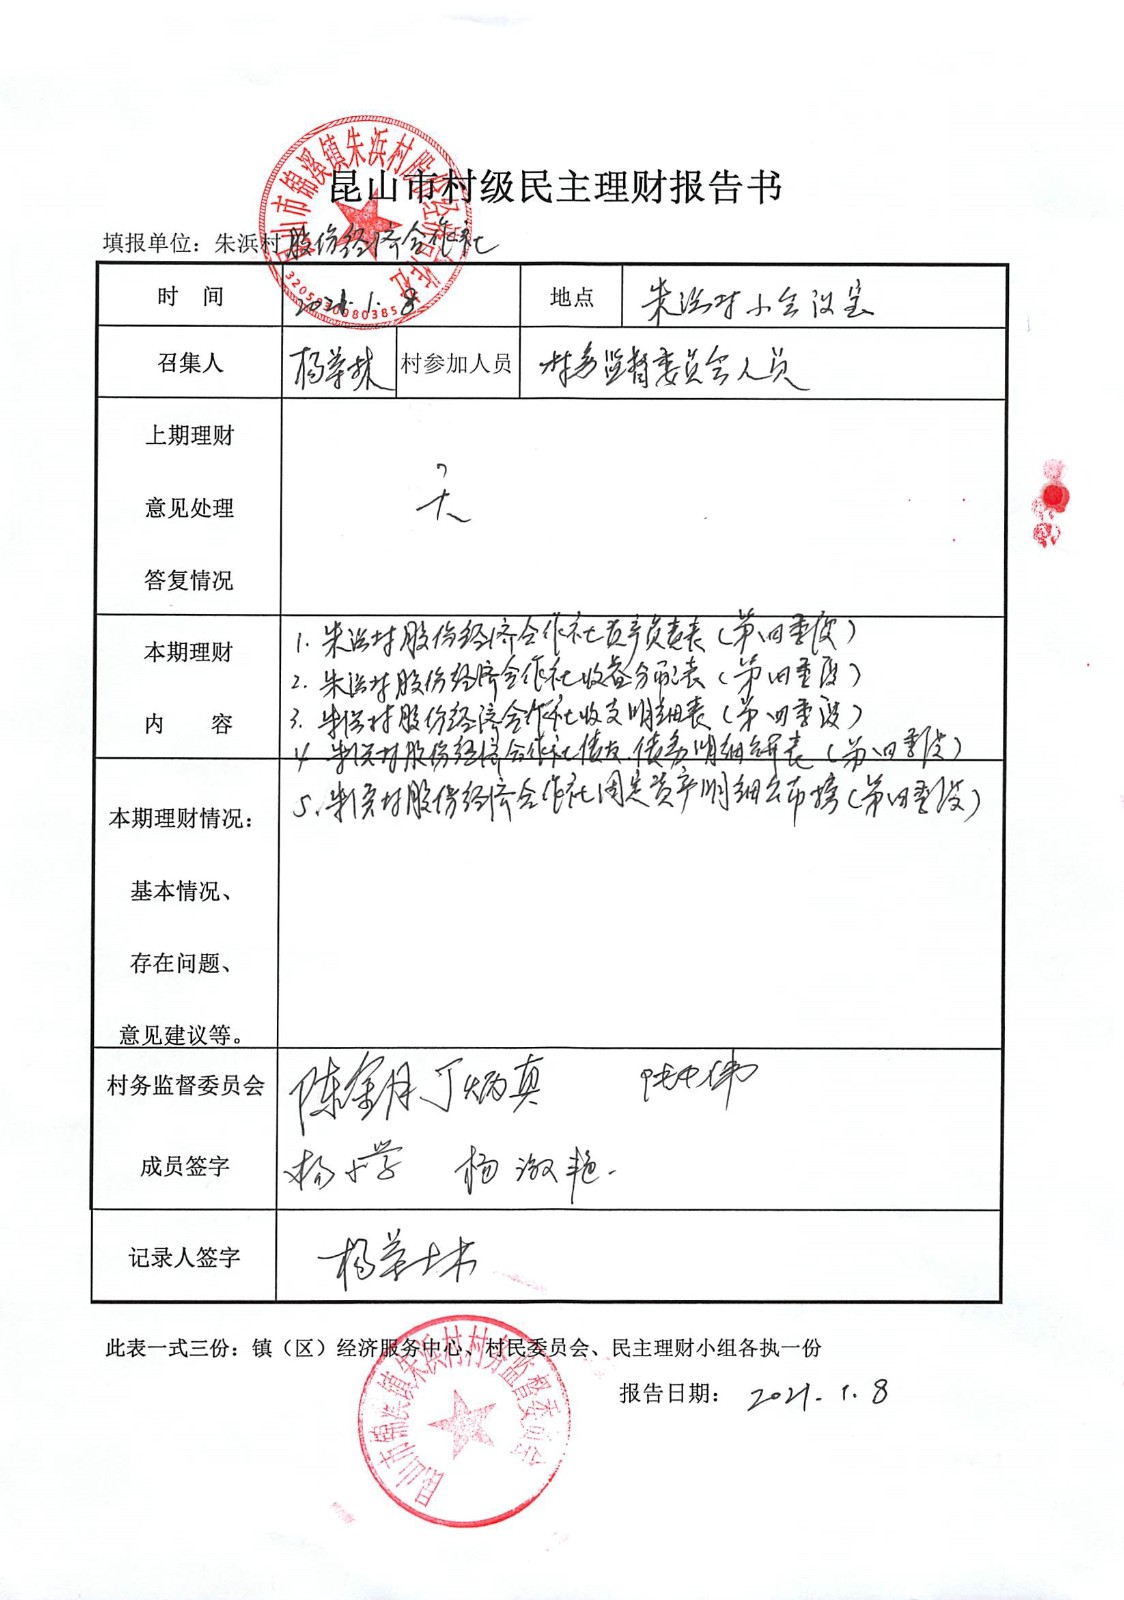 昆山市村级民主理财报告书
填报单位：朱浜村股份经济合作社
时 间 2021.1.8 地点 朱浜村小会议室
召集人 杨 村参加人员 村务监督委员会人员
上期理财
意见处理 无
答复情况
本期理财
内 容
1. 朱浜村股份经济合作社资产负责表（第四季度）
2. 朱浜村股份经济合作社收益分配表（第四季度）
3. 朱浜村股份经济合作社收支明细表（第四季度）
4. 朱浜村股份经济合作社债权、债务明细公开表（第四季度）
5. 朱浜村股份经济合作社固定资产明细公布榜（第四季度）
本期理财情况：
基本情况、
存在问题、
意见建议等。
村务监督委员会 陈金月 丁炳真
成员签字 杨小学 杨激艳
记录人签字 杨
此表一式三份：镇（区）经济服务中心、村民委员会、民主理财小组各执一份
报告日期： 2021.1.8
昆山市锦溪镇朱浜村股份经济合作社
昆山市锦溪镇朱浜村村务监督委员会